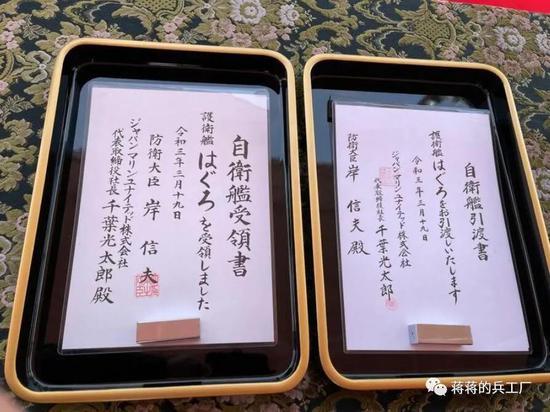 自衛艦受領書
護衛艦 はぐろ を受領しました
令和三年三月十九日
防衛大臣 岸 信夫
ジャパンマリンユナイテッド株式会社
代表取締役社長 千葉光太郎 殿
自衛艦引渡書
護衛艦はぐろをお引渡しいたします
令和三年三月十九日
ジャパンマリンユナイテッド株式会社
代表取締役社長 千葉光太郎
防衛大臣 岸 信夫 殿
蒋蒋的兵工厂